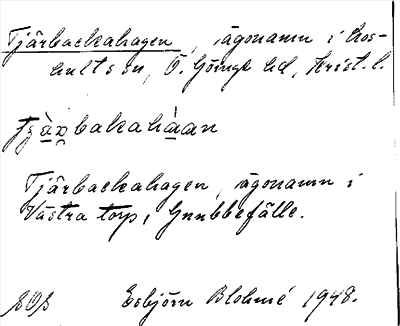 Tjärbackahagen, ägonamn i Los-
hults sn, Ö. Göinge hd, Krist. l.
Tjärbackahagen, ägonamn i
Västra torp, Gnubbefälle.
Esbjörn Blohmé 1948.